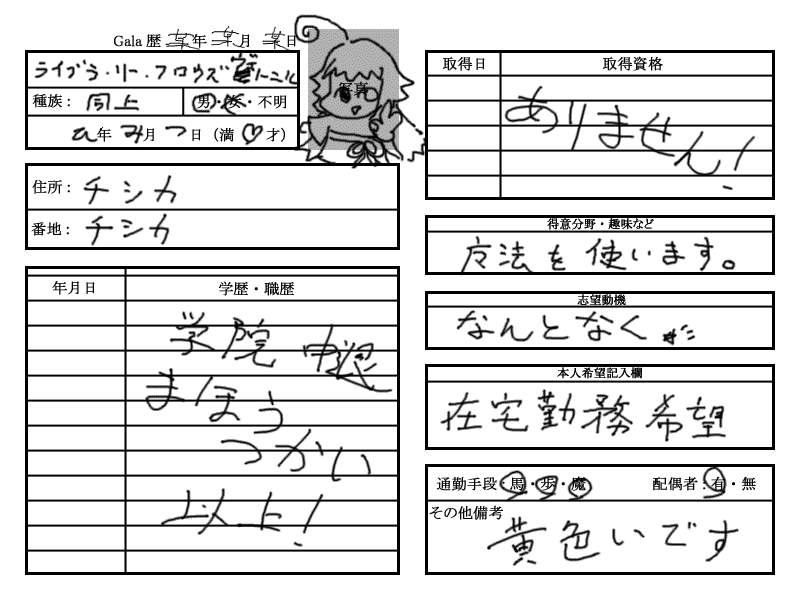 Gala 歴 某年 某月 某日
ライブラ・リー・フロウズ
写真
種族： 同上
男・女・不明
ひ年 み月 つ日（満 ♡ 才）
住所： チシカ
番地： チシカ
年月日 学歴・職歴
学院 中退
まほう
つかい
以上！
取得日 取得資格
ありません！
得意分野・趣味など
魔法を使います。
志望動機
なんとなく
本人希望記入欄
在宅勤務希望
通勤手段：馬・歩・魔 配偶者：有・無
その他備考
黄色いです